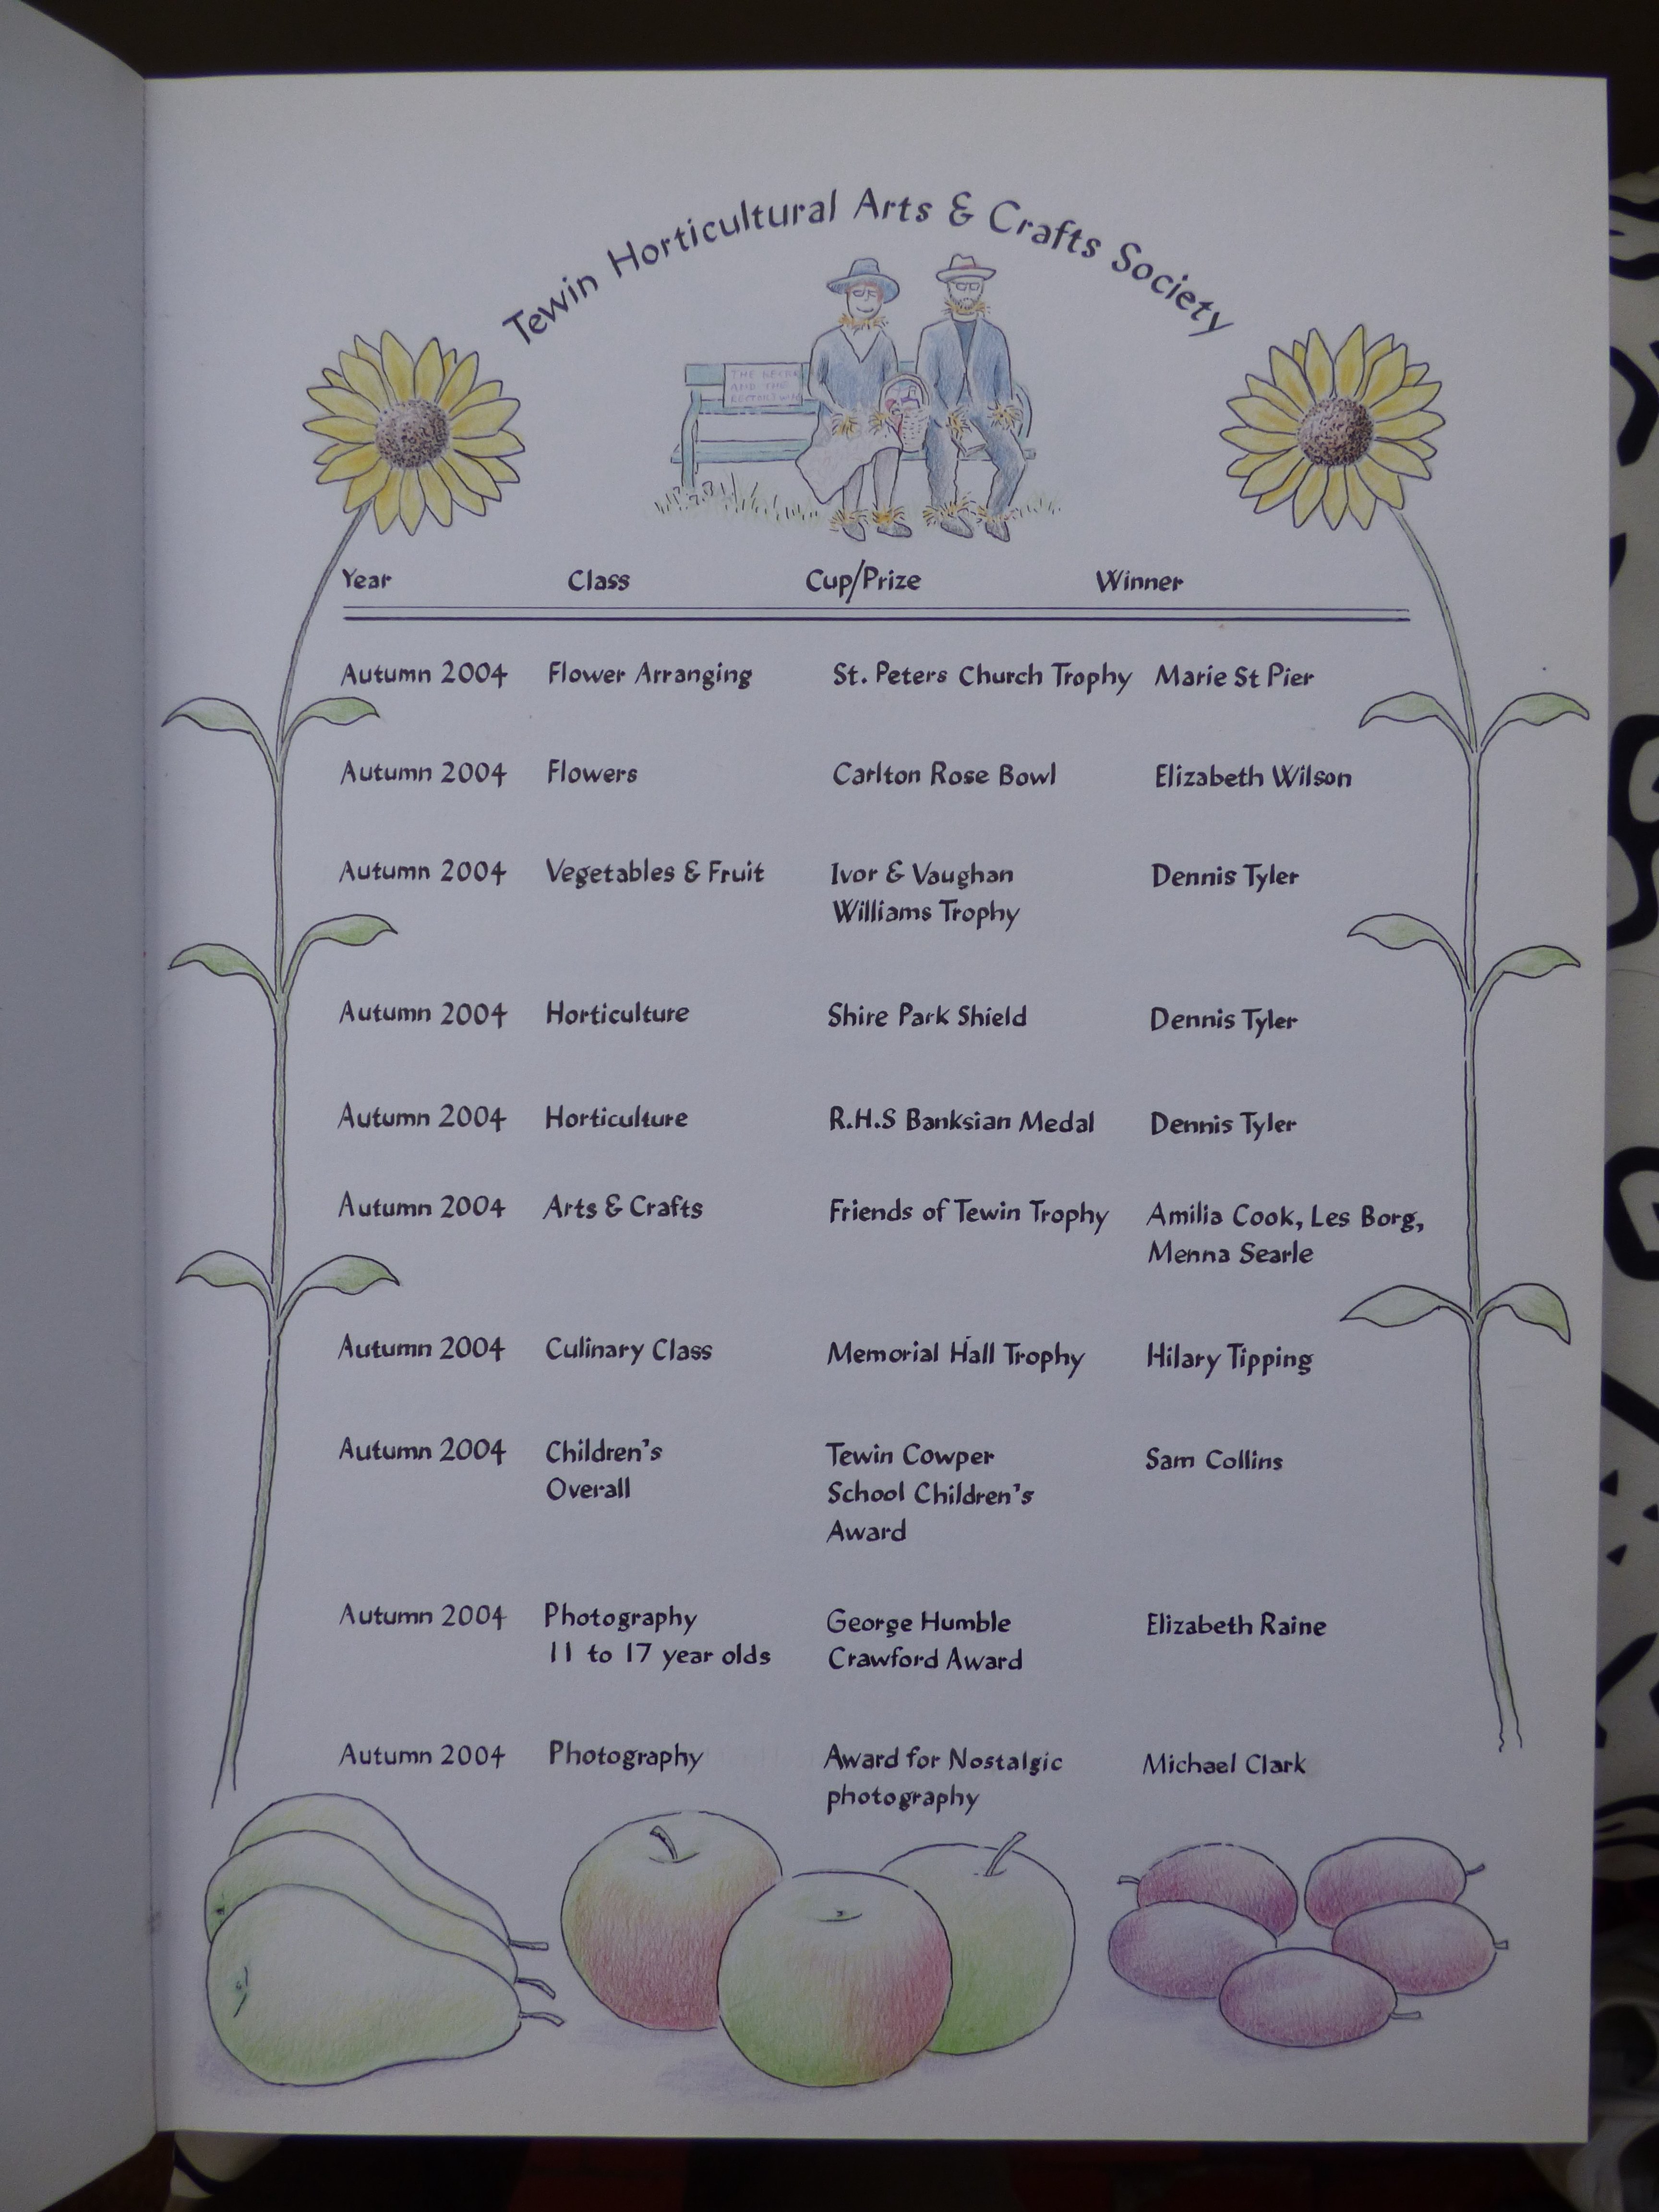 Tewin Horticultural Arts & Crafts Society
THE RECTOR
AND THE
RECTOR'S WIFE
Year Class Cup/Prize Winner
Autumn 2004 Flower Arranging St. Peters Church Trophy Marie St Pier
Autumn 2004 Flowers Carlton Rose Bowl Elizabeth Wilson
Autumn 2004 Vegetables & Fruit Ivor & Vaughan Dennis Tyler
Williams Trophy
Autumn 2004 Horticulture Shire Park Shield Dennis Tyler
Autumn 2004 Horticulture R.H.S Banksian Medal Dennis Tyler
Autumn 2004 Arts & Crafts Friends of Tewin Trophy Amilia Cook, Les Borg,
Menna Searle
Autumn 2004 Culinary Class Memorial Hall Trophy Hilary Tipping
Autumn 2004 Children's Tewin Cowper Sam Collins
Overall School Children's
Award
Autumn 2004 Photography George Humble Elizabeth Raine
11 to 17 year olds Crawford Award
Autumn 2004 Photography Award for Nostalgic Michael Clark
photography